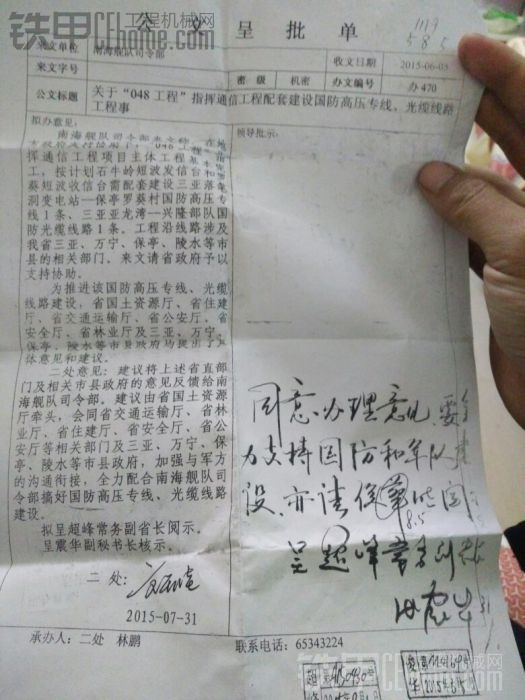 铁甲 工程机械网
bbs.cehome.com
公文呈批单
来文单位 南海舰队司令部
收文日期 2015-06-05
来文字号
密级 机密 办文编号 办470
公文标题 关于“048工程”指挥通信工程配套建设国防高压专线、光缆线路
工程事
拟办意见:
领导批示:
南海舰队司令部来文称,在地
挥通信工程项目主体工程基本完
工,按计划石牛岭短波发信台和罗
葵短波收信台需配套建设三亚落笔
洞变电站—保亭罗葵村国防高压专
线1条、三亚亚龙湾—兴隆部队国
防光缆线路1条。工程沿线路涉及
我省三亚、万宁、保亭、陵水等市
县的相关部门。来文请省政府予以
支持协助。
为推进该国防高压专线、光缆
线路建设,省国土资源厅、省住建
厅、省交通运输厅、省公安厅、省
安全厅、省林业厅及三亚、万宁、
保亭、陵水等市县政府均提出了具
体意见和建议。
二处意见:建议将上述省直部
门及相关市县政府的意见反馈给南
海舰队司令部。建议由省国土资源
厅牵头,会同省交通运输厅、省林
业厅、省住建厅、省安全厅、省公
安厅等相关部门及三亚、万宁、保
亭、陵水等市县政府,加强与军方
的沟通衔接,全力配合南海舰队司
令部搞好国防高压专线、光缆线路
建设。
拟呈超峰常务副省长阅示。
呈震华副秘书长核示。
同意办理意见,要全
力支持国防和军队建
设,亦请
呈超峰常务副省长
二处:
2015-07-31
承办人:二处 林鹏 联系电话:65343224
铁甲 工程机械网
bbs.cehome.com